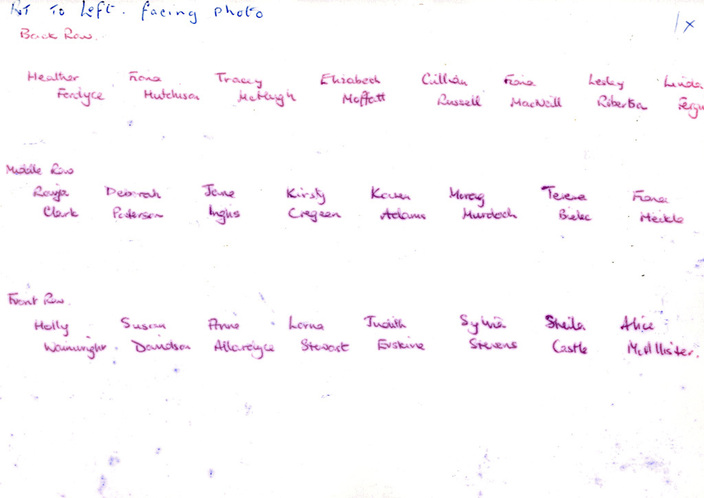 RT To Left. facing photo
1x
Back Row.
Heather Fiona Tracey Elizabeth Gillian Fiona Lesley Linda
Fordyce Hutchison McHugh Moffatt Russell MacNeill Robertson
Middle Row
Deborah Jane Kirsty Karen Morag Fiona
Clark Pederson Inglis Cregeen Adams Murdoch Meikle
Front Row.
Holly Susan Anne Lorna Judith Sylvia Sheila Alice
Wainwright. Davidson Allardyce Stewart Erskine Stevens Castle McAllister.